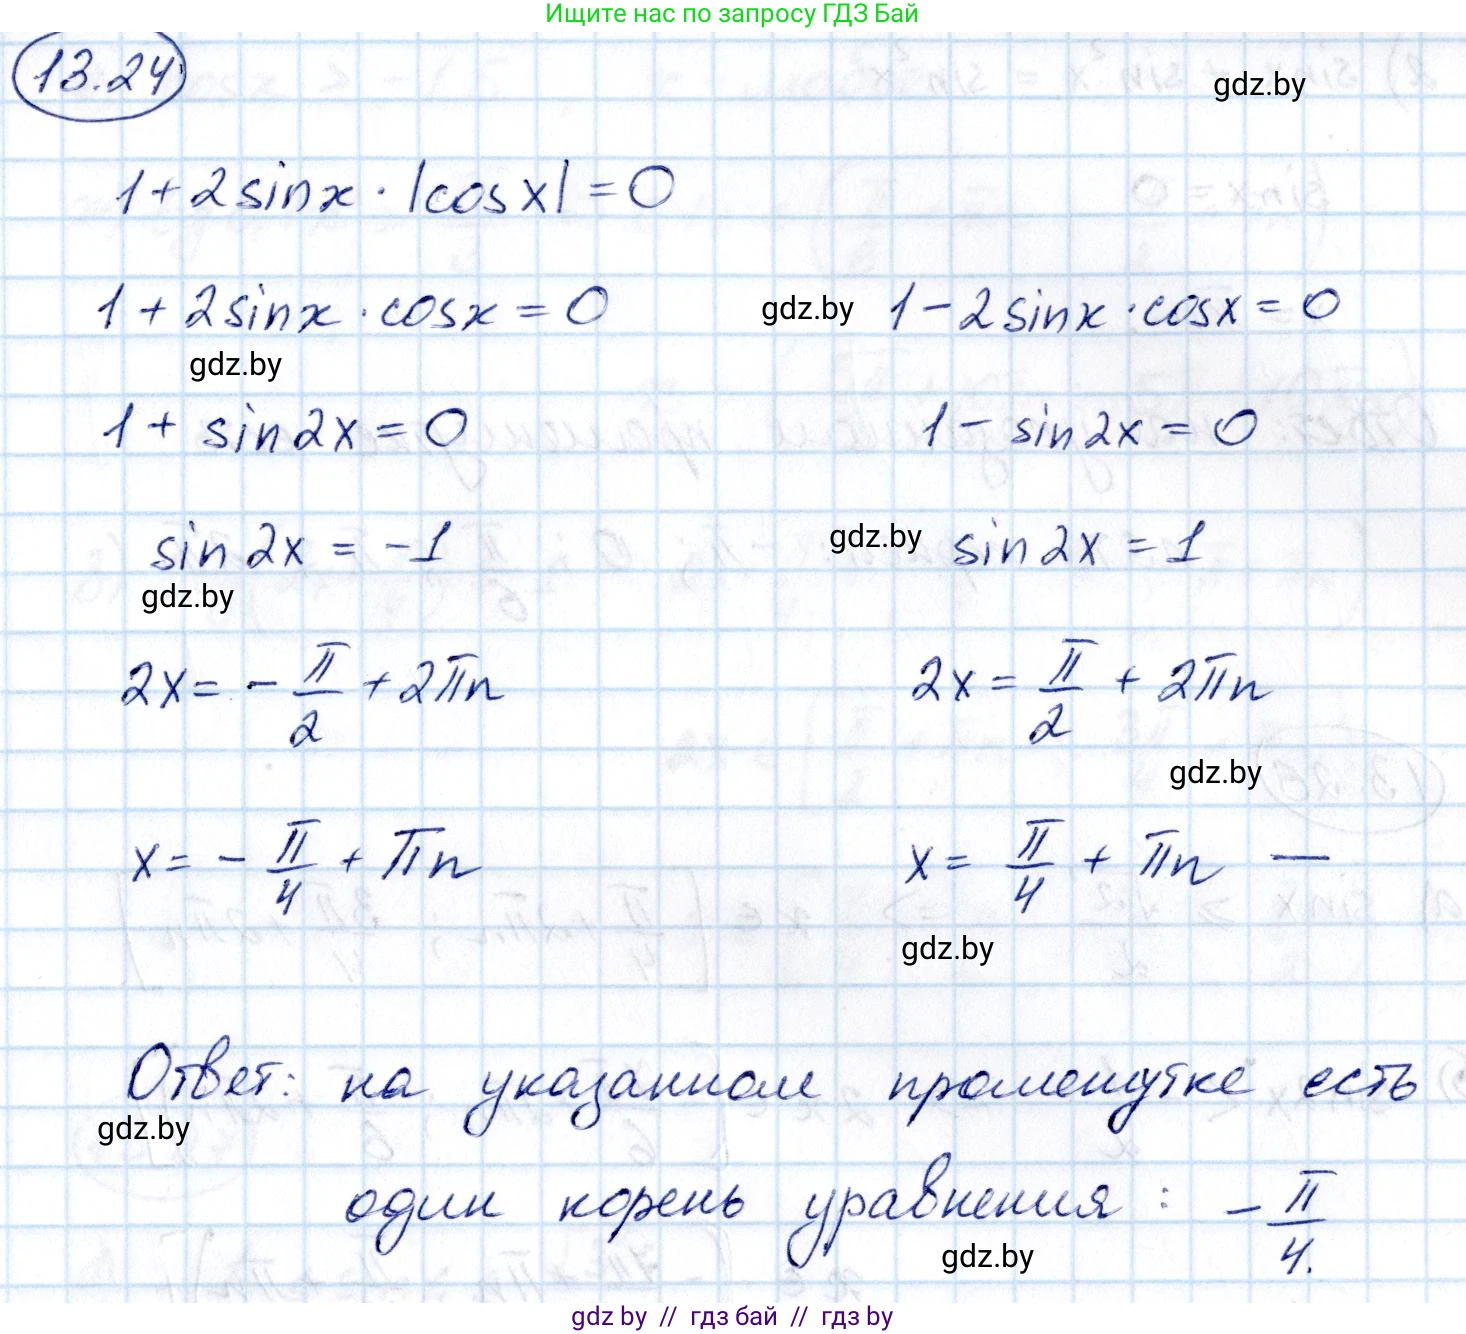 Ищите нас по запросу ГДЗ Бай
13.24
gdz.by
1+2sinx·|cosx|=0
1+2sinx·cosx=0 gdz.by 1-2sinx·cosx=0
gdz.by
1+sin2x=0 1-sin2x=0
sin2x=-1 gdz.by sin2x=1
gdz.by
2x=-π/2+2πn 2x=π/2+2πn
gdz.by
x=-π/4+πn x=π/4+πn —
gdz.by
Ответ: на указанном промежутке есть
gdz.by
один корень уравнения: -π/4.
gdz.by
gdz by // гдз бай // гдз by